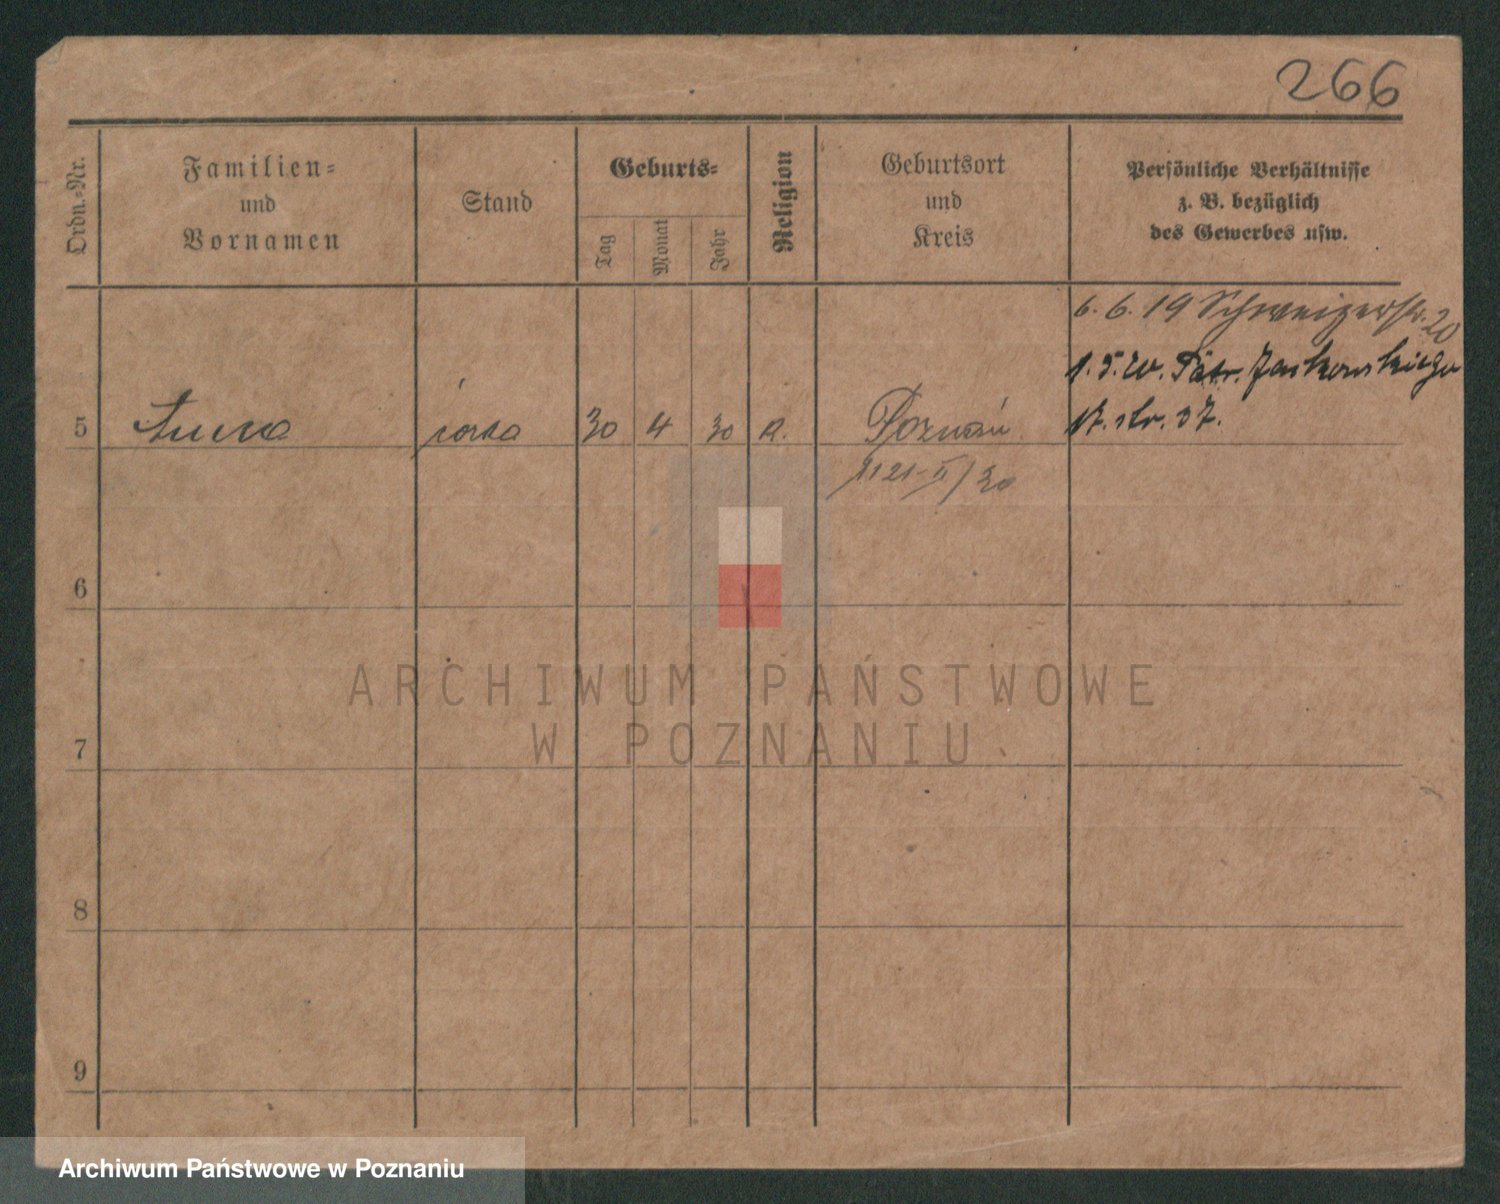 266
Ordn.-Nr.
Familien-
und
Vornamen
Stand
Geburts-
Tag
Monat
Jahr
Religion
Geburtsort
und
Kreis
Persönliche Verhältnisse
z. B. bezüglich
des Gewerbes usw.
6. 6. 19 Schweizerstr. 20
1. 5. 20. Jarkowskiego
str. 37.
5
Anna
córka
30
4
30
Poznań
1121-II/30
6
7
8
9
ARCHIWUM PAŃSTWOWE
W POZNANIU
Archiwum Państwowe w Poznaniu